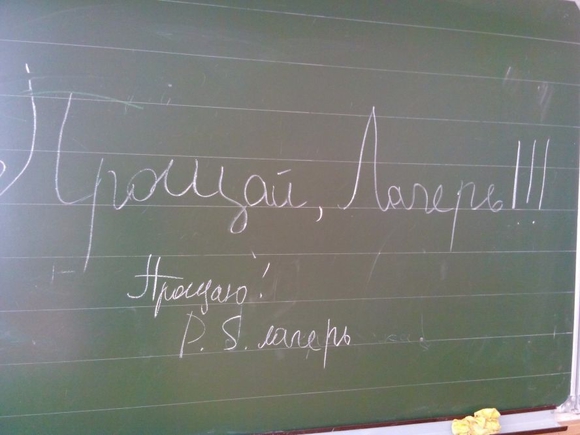 Прощай, Лагерь!!!
Прощаю!
P.S. лагерь